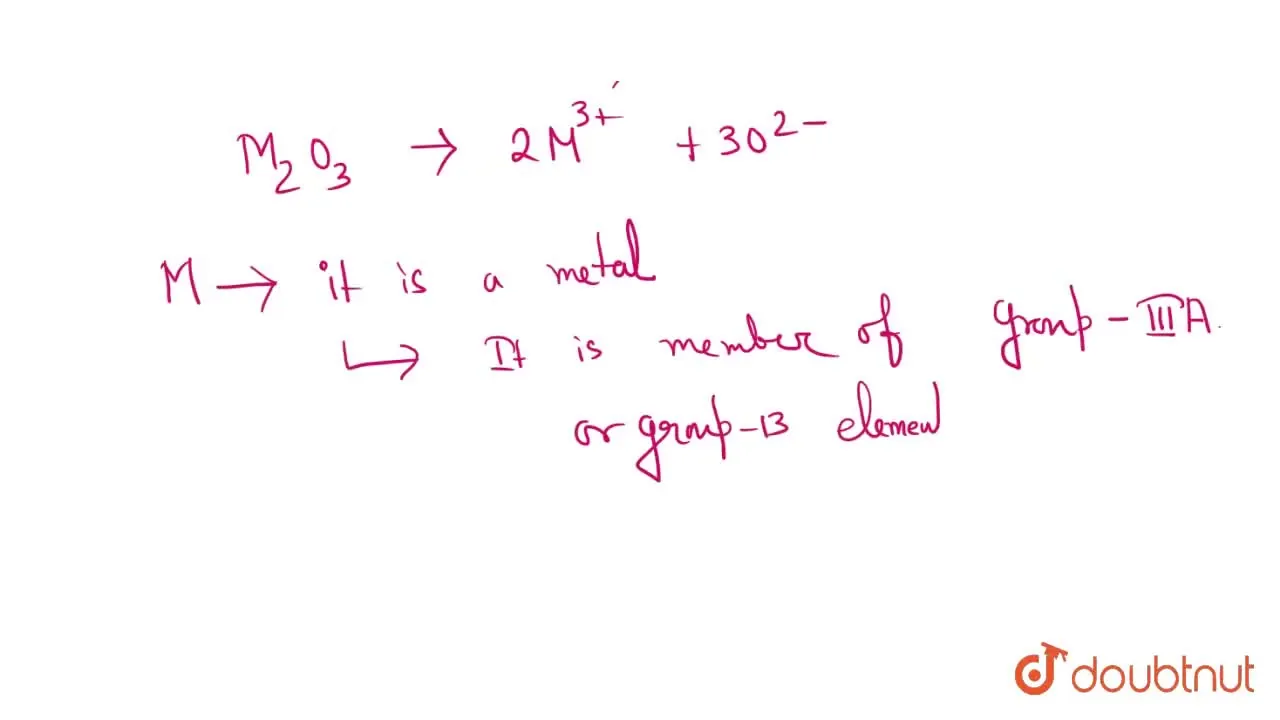 M₂O₃ → 2M³⁺ + 3O²⁻
M → it is a metal
↳ It is member of group-IIIA.
or group-13 elemen
doubtnut